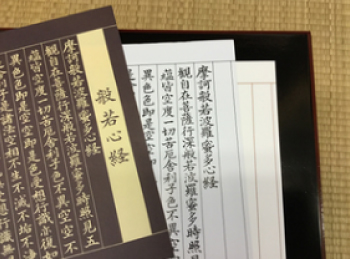 般若心経
摩訶般若波羅蜜多心経
観自在菩薩行深般若波羅蜜多時照見五
蘊皆空度一切苦厄舎利子色不異空空不
異色色即是空空即是色受想行識亦復如
是舎利子是諸法空相不生不滅不垢不
摩訶般若波羅蜜多心経
観自在菩薩行深般若波羅蜜多時照見
蘊皆空度一切苦厄舎利子色不異空
異色色即是空空